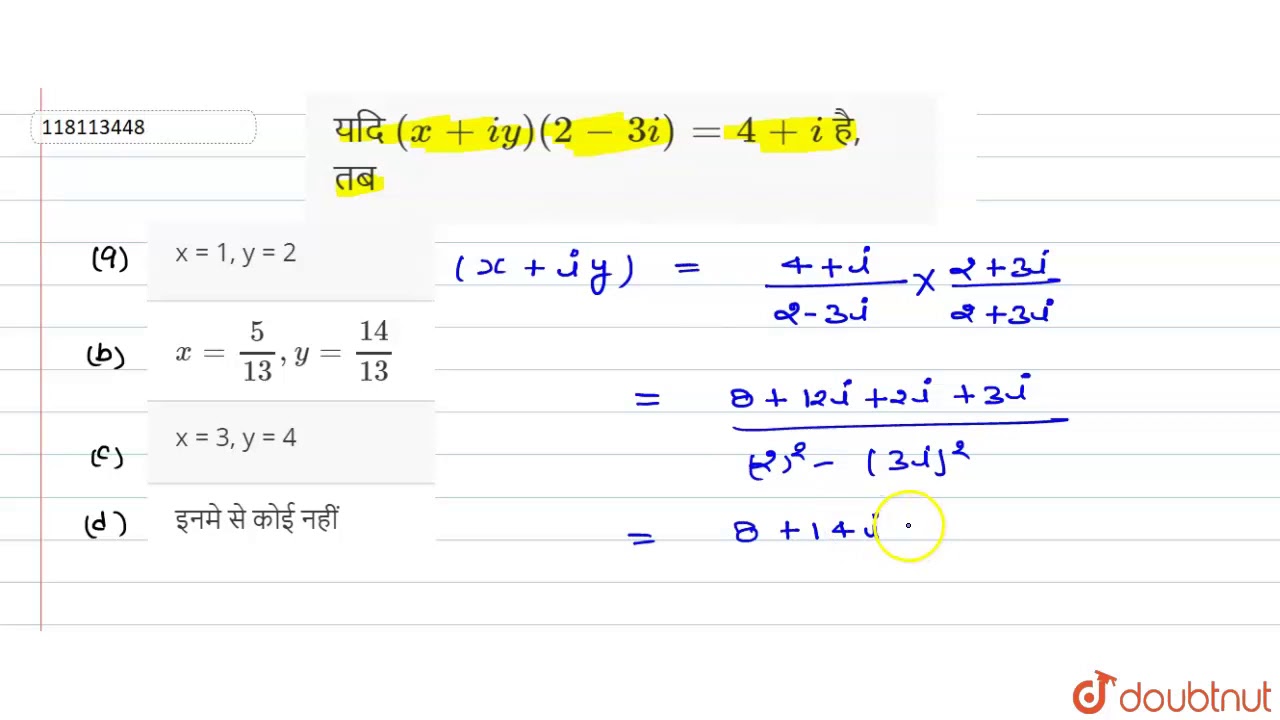 118113448
यदि (x + iy)(2 − 3i) = 4 + i है,
तब
(a) x = 1, y = 2
(b) x = 5/13, y = 14/13
(c) x = 3, y = 4
(d) इनमे से कोई नहीं
(x + iy) = 4+i/2-3i × 2+3i/2+3i
= 8 + 12i + 2i + 3i/(2)² - (3i)²
= 8 + 14i
doubtnut